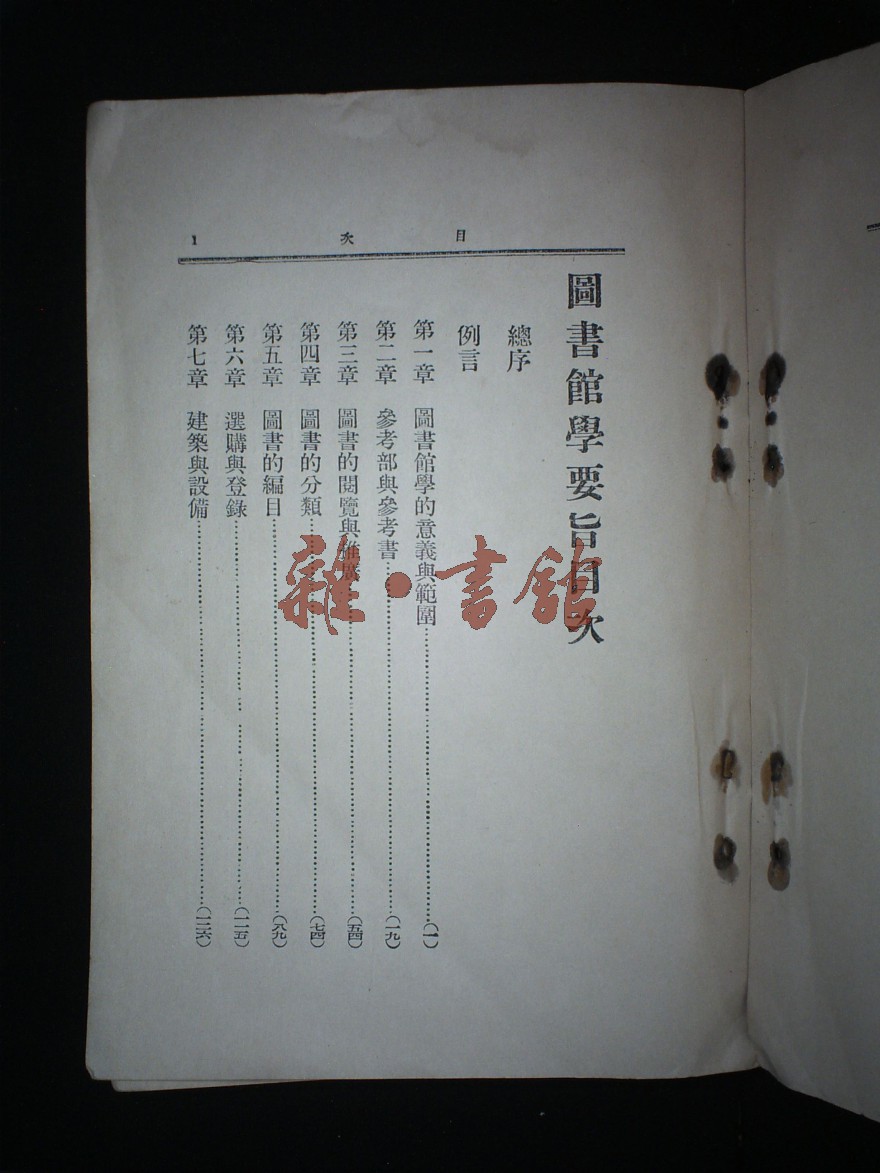 目次 1
圖書館學要旨目次
總序
例言
第一章 圖書館學的意義與範圍……(一)
第二章 參考部與參考書……(一九)
第三章 圖書的閱覽與推廣……(五四)
第四章 圖書的分類……(七四)
第五章 圖書的編目……(八九)
第六章 選購與登錄……(一一五)
第七章 建築與設備……(一二六)
雜·書館